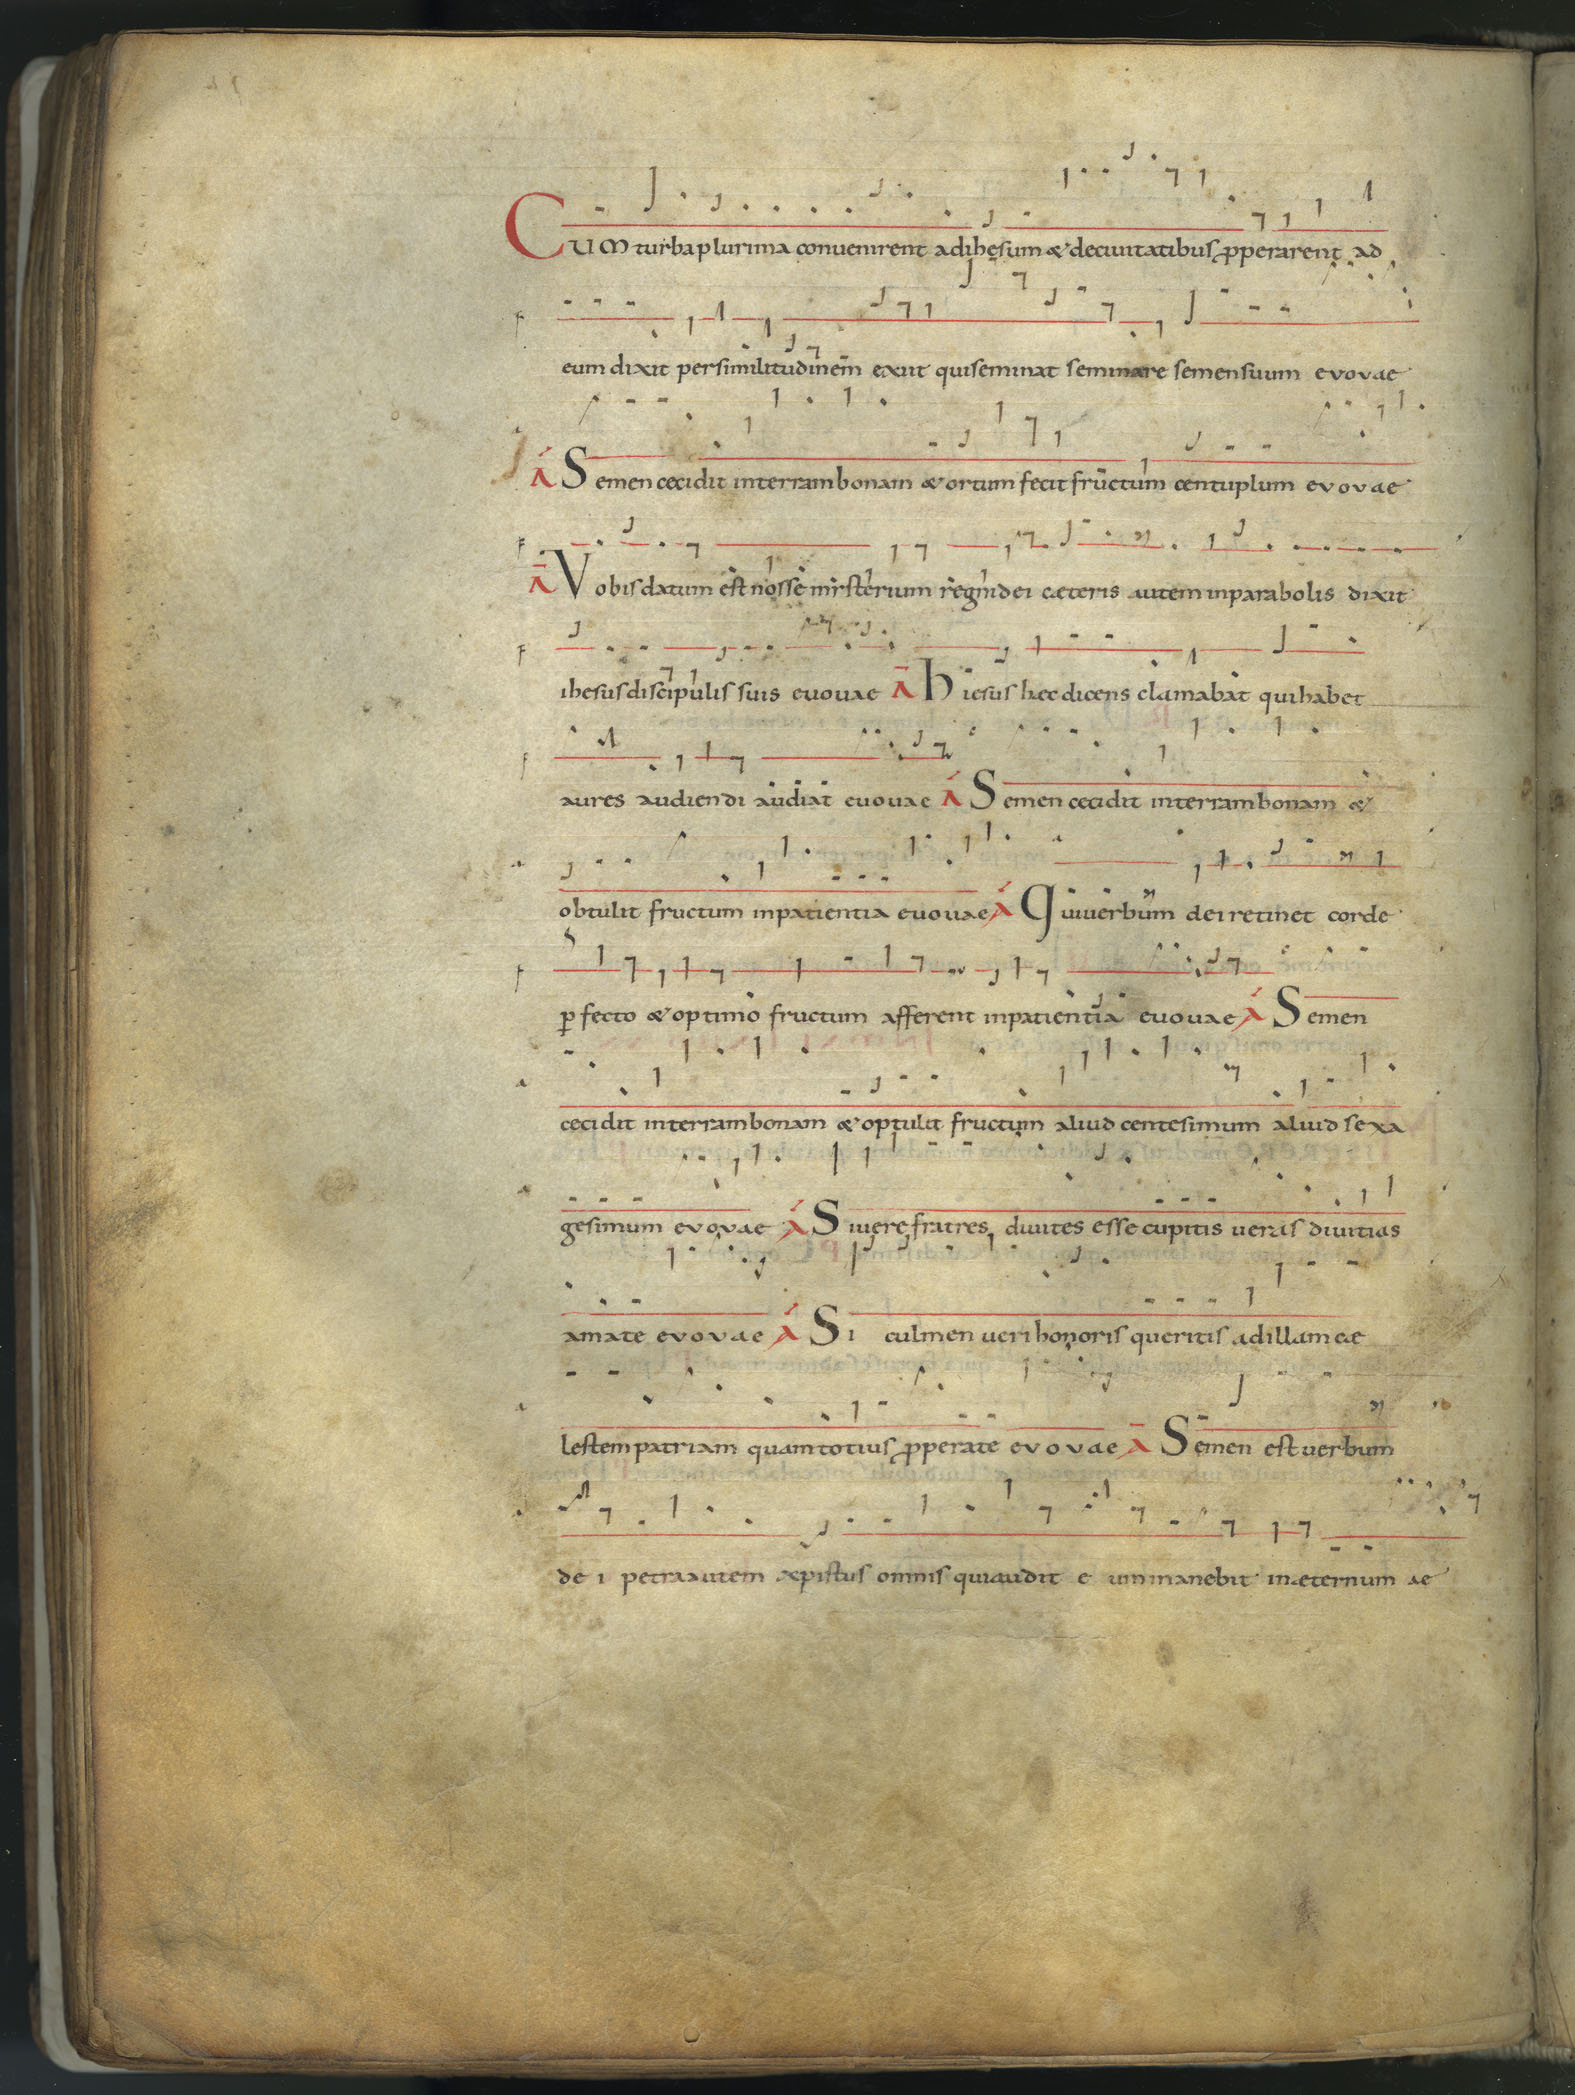 Cum turba plurima convenirent ad ihesum & de civitatibus pperarent ad
eum dixit per similitudinem exiit qui seminat seminare semen suum evovae
A Semen cecidit in terram bonam & ortum fecit fructum centuplum evovae
A Vobis datum est nosse misterium regni dei cæteris autem in parabolis dixit
ihesus discipulis suis evovae A hiesus hæc dicens clamabat qui habet
aures audiendi audiat evovae A Semen cecidit in terram bonam &
obtulit fructum in patientia evovae A Qui verbum dei retinet corde
pfecto & optimo fructum afferent in patientia evovae A Semen
cecidit in terram bonam & optulit fructum aliud centesimum aliud sexa
gesimum evovae A Si vere fratres divites esse cupitis veras divitias
amate evovae A Si culmen veri honoris queritis ad illam cæ
lestem patriam quamtotius pperate evovae A Semen est verbum
dei petra autem xpistus omnis qui audit eum manebit in æternum ae